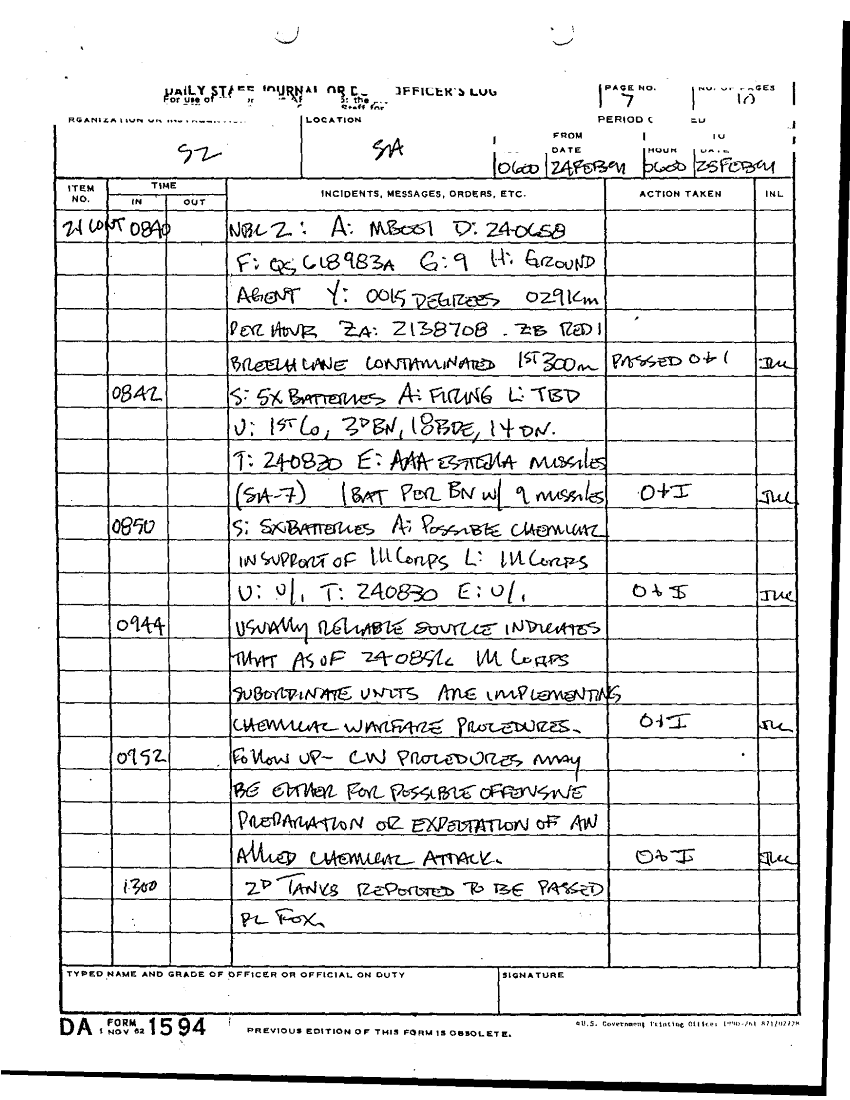 DAILY STAFF JOURNAL OR D OFFICER'S LOG
For use of
PAGE NO.
7
NO. OF PAGES
10
LOCATION
PERIOD
S2
SA
FROM
TO
DATE
HOUR
DATE
0600 24FEB91 0600 25FEB91
ITEM NO.
TIME
IN OUT
INCIDENTS, MESSAGES, ORDERS, ETC.
ACTION TAKEN
INL
21 CONT 0840 NBC 2: A: MB001 D: 240658
F: QS618983A G: 9 H: GROUND
AGENT Y: 0015 DEGREES 029Km
PER HOUR ZA: 2138708. ZB RED 1
BREECH LANE CONTAMINATED 1ST 300m PASSED O+I
0842 S: SX BATTERIES A: FIRING L: TBD
U: 1ST Co, 3D BN, 18 BDE, 14 DN.
T: 240830 E: AAA ESTRELLA MISSILES
(SA-7) 1 BAT PER BN W/ 9 MISSILES O+I
0850 S: SX BATTERIES A: POSSIBLE CHEMICAL
IN SUPPORT OF III CORPS L: III CORPS
U: U/I T: 240830 E: U/I O+I
0944 USUALLY RELIABLE SOURCE INDICATES
THAT AS OF 240851c III CORPS
SUBORDINATE UNITS ARE IMPLEMENTING
CHEMICAL WARFARE PROCEDURES. O+I
0952 FOLLOW UP- CW PROCEDURES MAY
BE EITHER FOR POSSIBLE OFFENSIVE
PREPARATION OR EXPECTATION OF AN
ALLIED CHEMICAL ATTACK. O+I
1300 2D TANKS REPORTED TO BE PASSED
PL FOX.
TYPED NAME AND GRADE OF OFFICER OR OFFICIAL ON DUTY
SIGNATURE
DA FORM 1594
1 NOV 62
PREVIOUS EDITION OF THIS FORM IS OBSOLETE.
U.S. Government Printing Office: